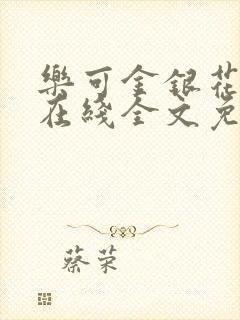 樂可金銀花
在綫全文免
蔡荣